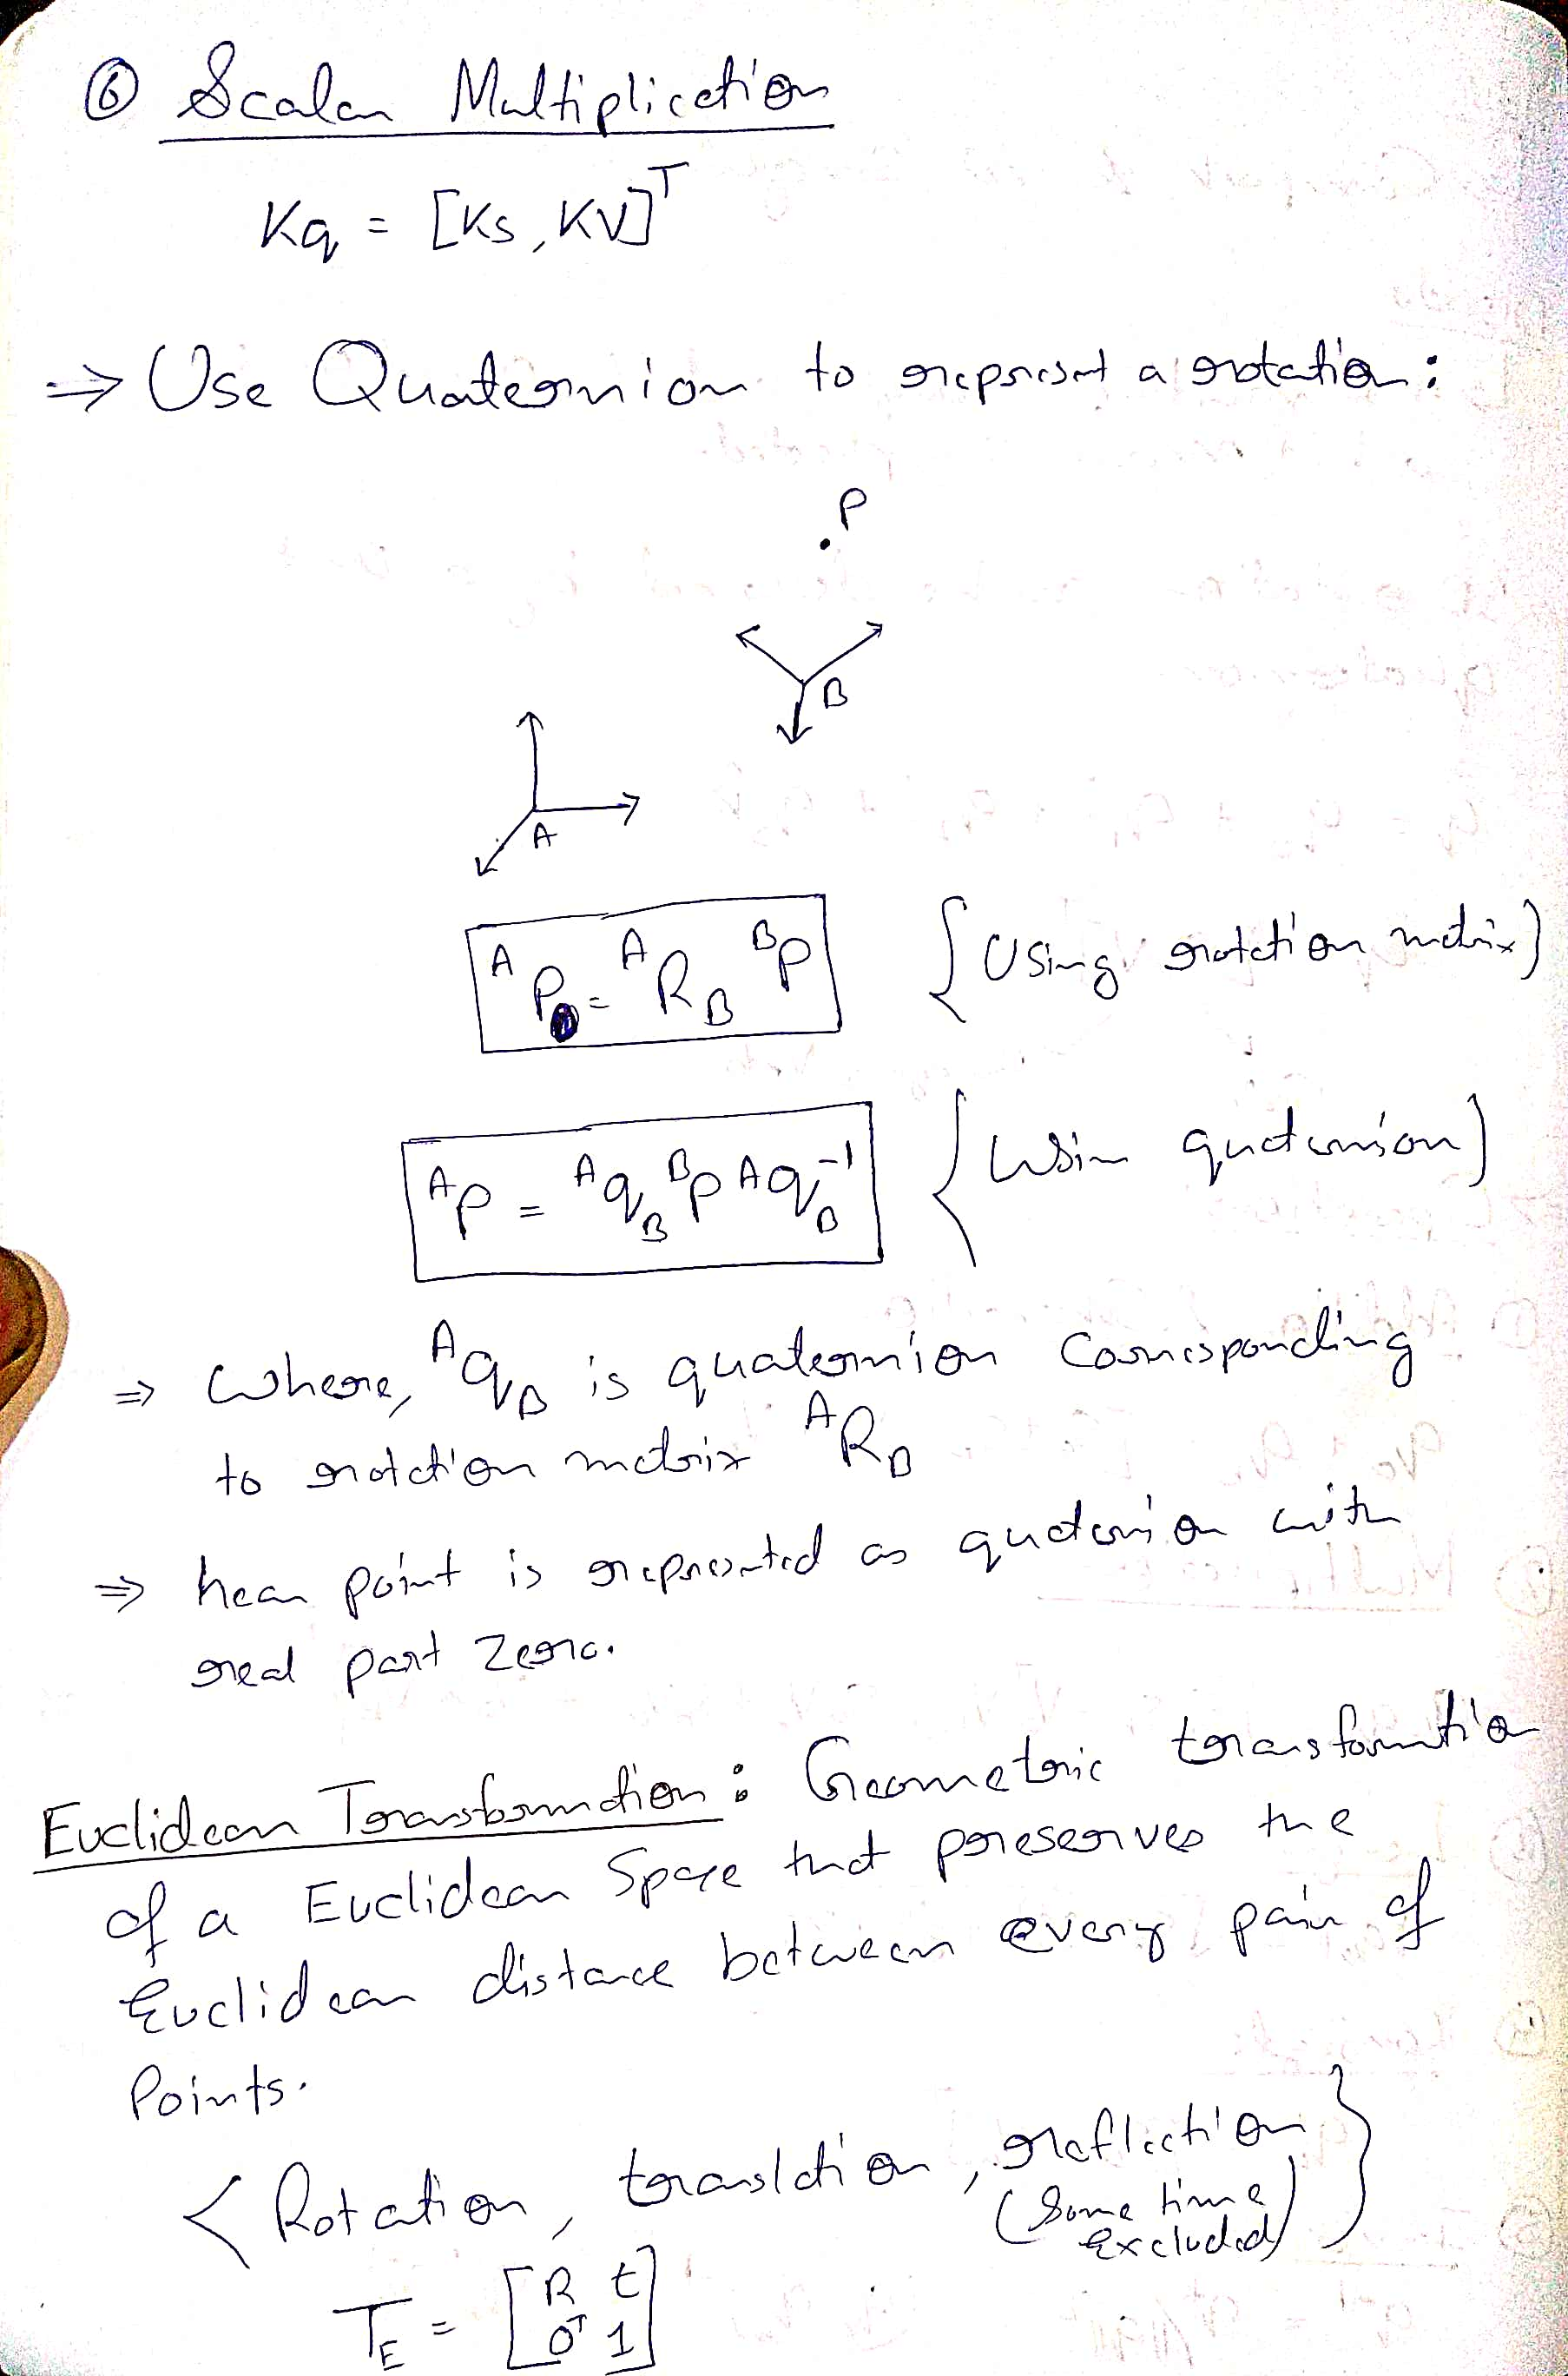 ⑥ Scalar Multiplication
Kq = [Ks, KV]^T
⇒ Use Quaternion to represent a rotation :
. P
B
A
^A P = ^A R_B ^B P {Using rotation matrix}
^A P = ^A q_B ^B P ^A q_B^-1 {Usin quaternion}
⇒ Where, ^A q_B is quaternion corresponding
to rotation matrix ^A R_B
⇒ hear point is represented as quaternion with
real part zero.
Euclidean Transformation : Geometric transformation
of a Euclidean Space that preserves the
Euclidean distance between every pair of
Points.
{ Rotation, translation, reflection }
(Some time
excluded)
T_E = [R t
0^T 1]